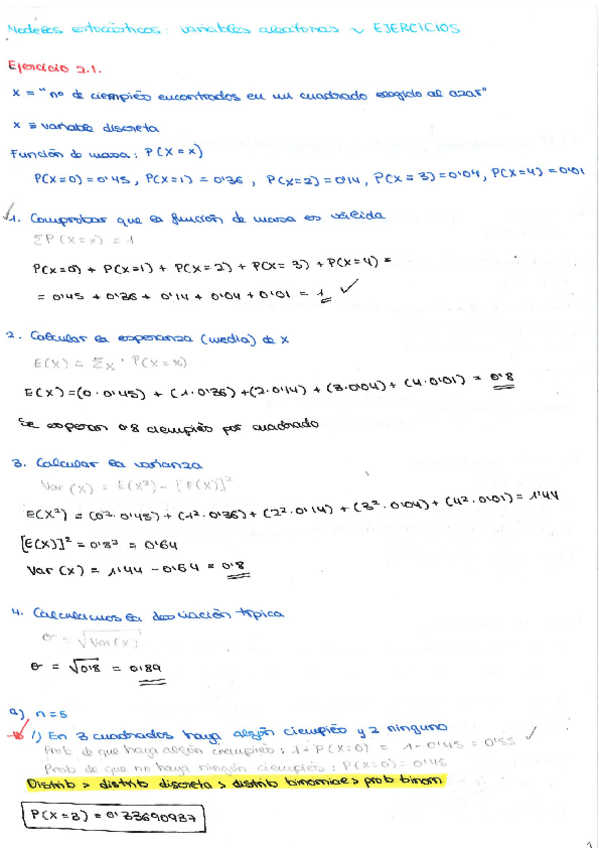 Modelos estocásticos: variables aleatorias ~ EJERCICIOS
Ejercicio 2.1.
X = "nº de ciempiés encontrados en un cuadrado elegido al azar"
X ≡ variable discreta
Función de masa: P(X=x)
P(X=0)=0'45, P(X=1)=0'36, P(X=2)=0'14, P(X=3)=0'04, P(X=4)=0'01
1. Comprobar que la función de masa es válida
ΣP(X=x) = 1
P(X=0) + P(X=1) + P(X=2) + P(X=3) + P(X=4) =
= 0'45 + 0'36 + 0'14 + 0'04 + 0'01 = 1 ✓
2. Calcular la esperanza (media) de X
E(X) = Σx · P(X=x)
E(X) = (0·0'45) + (1·0'36) + (2·0'14) + (3·0'04) + (4·0'01) = 0'8
Se esperan 0'8 ciempiés por cuadrado
3. Calcular la varianza
Var(X) = E(X²) - [E(X)]²
E(X²) = (0²·0'45) + (1²·0'36) + (2²·0'14) + (3²·0'04) + (4²·0'01) = 1'44
[E(X)]² = 0'8² = 0'64
Var(X) = 1'44 - 0'64 = 0'8
4. Calculamos la desviación típica
σ = √Var(X)
σ = √0'8 = 0'89
a) n=5
1) En 3 cuadrados haya algún ciempiés y 2 ninguno
Prob de que haya algún ciempiés: 1 - P(X=0) = 1 - 0'45 = 0'55 ✓
Prob de que no haya ningún ciempiés: P(X=0) = 0'45
Distrib > distrib discreta > distrib binomial > prob binom
P(X=3) = 0'33690937
1